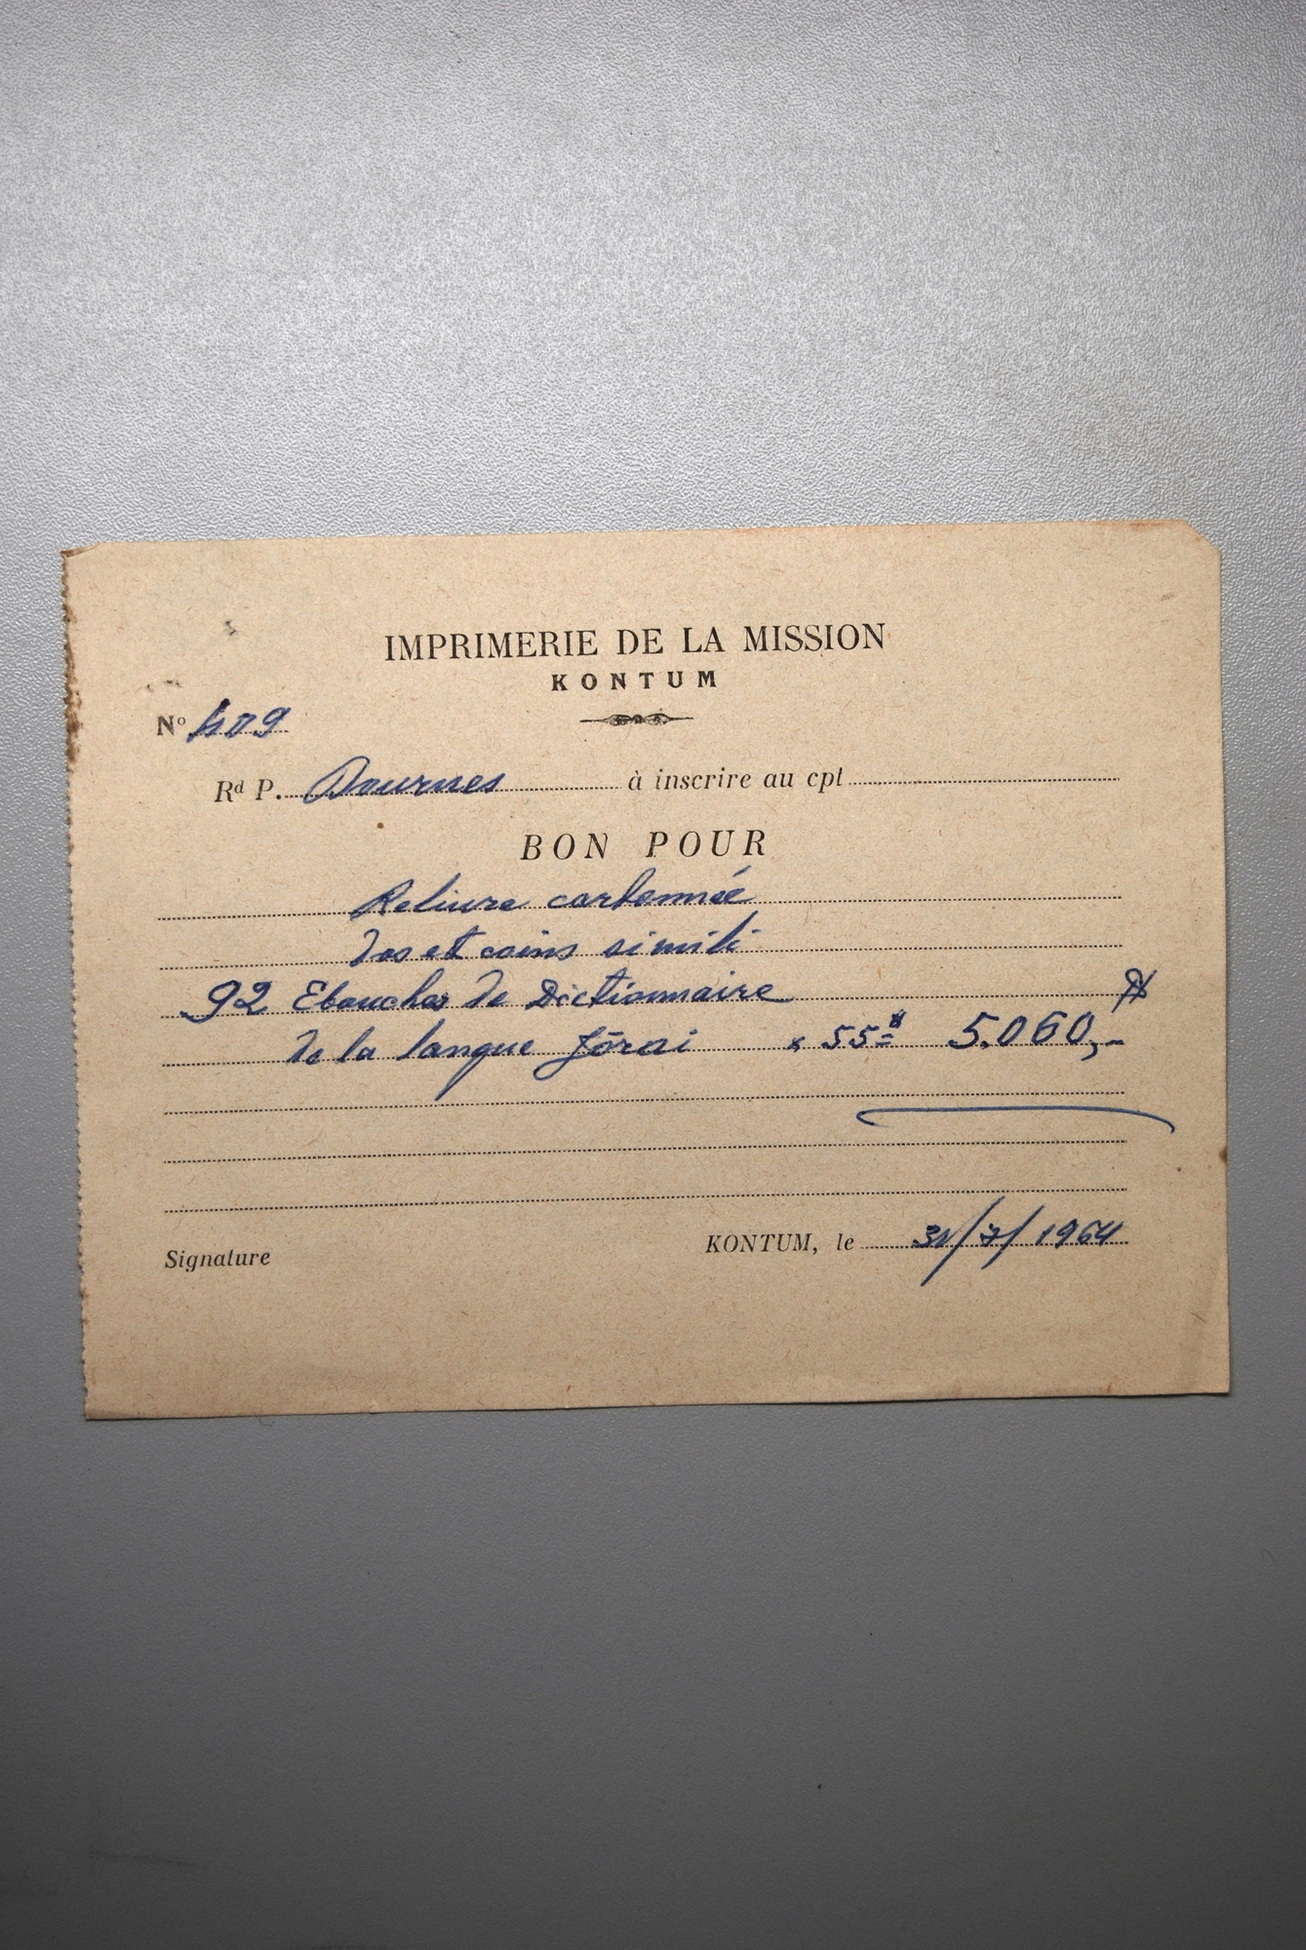 IMPRIMERIE DE LA MISSION
KONTUM
Nº 409
Rd P. Dournes à inscrire au cpt
BON POUR
Reliure cartonnée
dos et coins simili
92 Ebauches de Dictionnaire
de la langue Jörai x 55$ 5.060,-
Signature KONTUM, le 31/7/1964